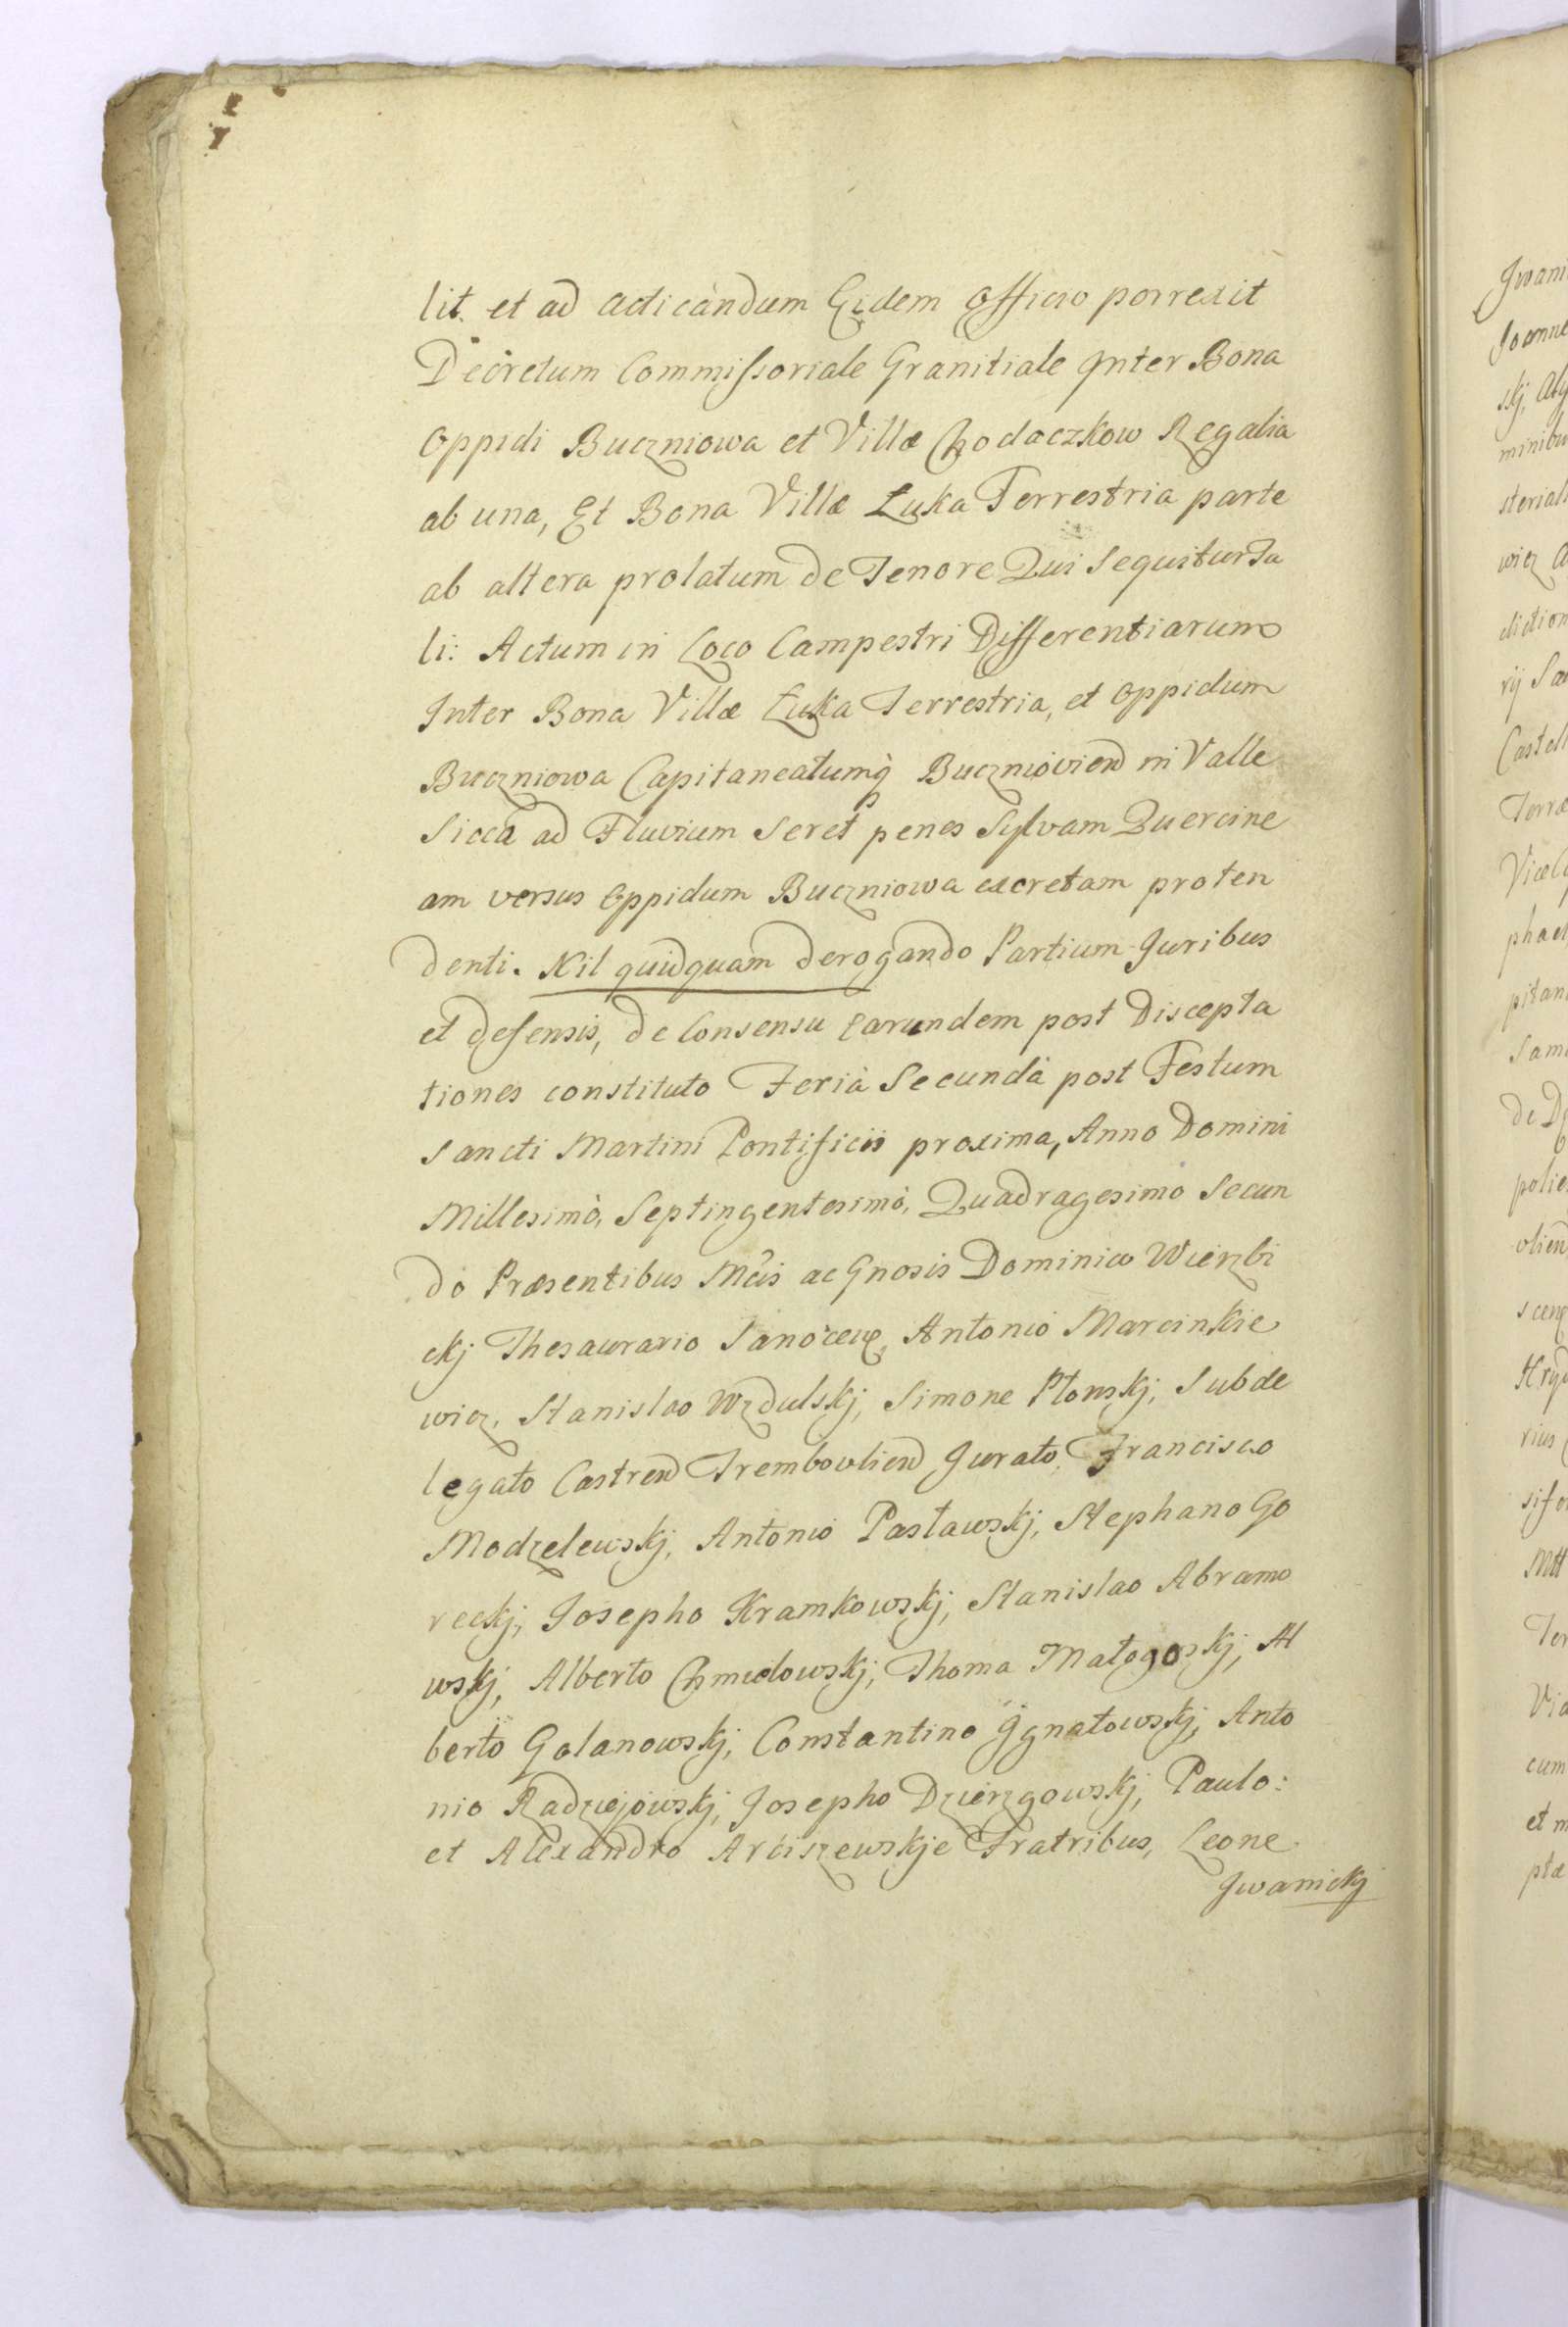 lit et ad acticandum Eidem Officio porrexit
Decretum Commissoriale Granitiale Inter Bona
Oppidi Buczniowa et Villæ Chodaczkow Regalia
ab una, Et Bona Villæ Łuka Terrestria parte
ab altera prolatum de Tenore Qui Sequitur Ta
li: Actum in Loco Campestri Differentiarum
Inter Bona Villæ Łuka Terrestria, et Oppidum
Buczniowa Capitaneatumq Buczniovien in Valle
Sicca ad Fluvium Seret penes Sylvam Quercine
am versus Oppidum Buczniowa excretam proten
denti. Nil quidquam derogando Partium Juribus
et defensis, de Consensu Earundem post Discepta
tiones constituto Feria Secundà post Festum
Sancti Martini Pontificis proxima, Anno Domini
Millesimò, Septingentesimò, Quadragesimo Secun
do Præsentibus Mcis ac Gnosis Dominico Wierzbi
ckj Thesaurario Sanocen, Antonio Marcinkie
wicz, Stanislao Wzdulskj, Simone Płonskj, Subde
legato Castren Trembowlien Jurato, Francisco
Modzelewskj, Antonio Pasławskj, Stephano Go
reckj, Josepho Kramkowskj, Stanislao Abramo
wskj, Alberto Chmielowskj, Thoma Małogoskj, Al
berto Golanowskj, Constantino Jgnatowskj, Anto
nio Radziejowskj, Josepho Dzierzgowskj, Paulo:
et Alexandro Arciszewskje Fratribus, Leone
Jwanickj
Jwani
Joanne
skj,
minibu
steriali
wicz
diction
rij Sa
Castell
Terræ
Vice
phael
pitan
Sam
de
polie
vlien
scen
rius
sifo
Ter
Via
cum
et m
ptæ